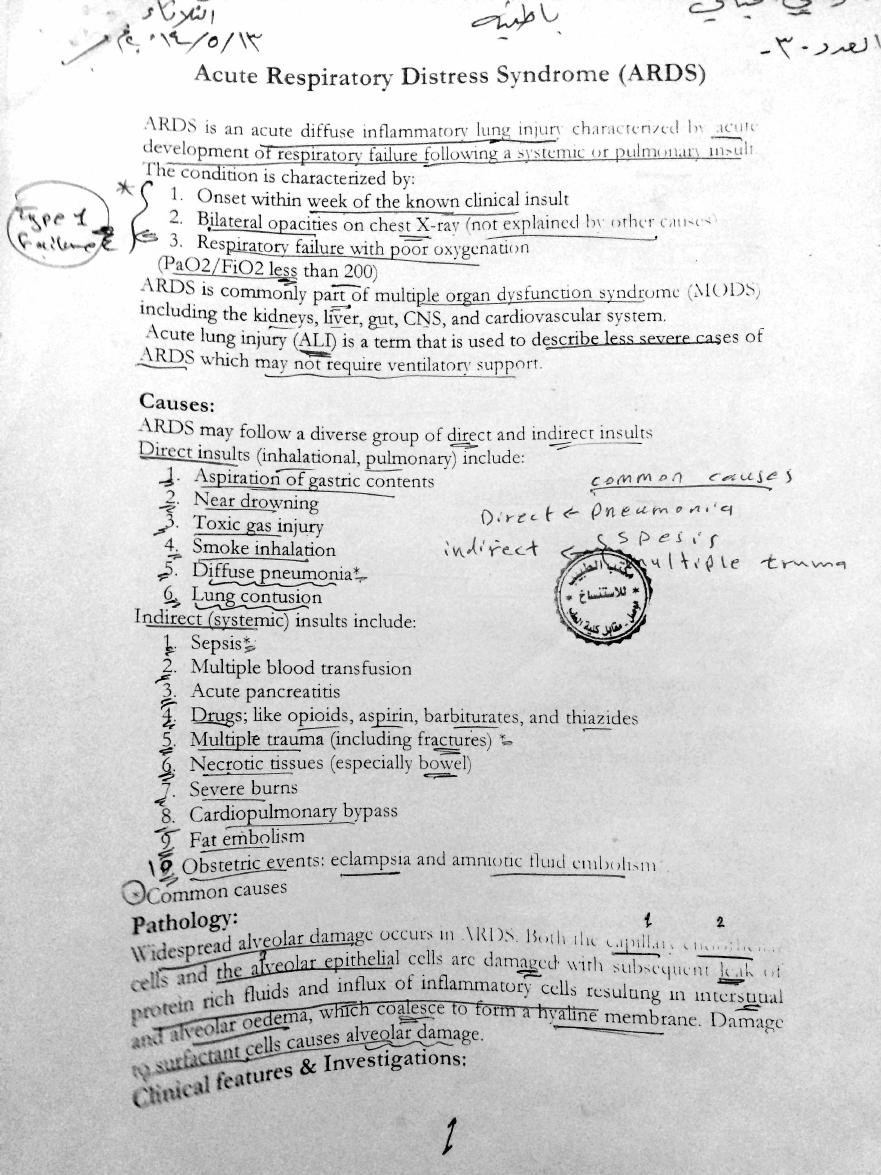 الثلاثاء
باطنية
٢٠١٤/٥/١٣
العدد -٣٠-
Acute Respiratory Distress Syndrome (ARDS)
ARDS is an acute diffuse inflammatory lung injury characterized by acute
development of respiratory failure following a systemic or pulmonary insult.
The condition is characterized by:
1. Onset within week of the known clinical insult
2. Bilateral opacities on chest X-ray (not explained by other causes)
Type 1
failure
3. Respiratory failure with poor oxygenation
(PaO2/FiO2 less than 200)
ARDS is commonly part of multiple organ dysfunction syndrome (MODS)
including the kidneys, liver, gut, CNS, and cardiovascular system.
Acute lung injury (ALI) is a term that is used to describe less severe cases of
ARDS which may not require ventilatory support.
Causes:
ARDS may follow a diverse group of direct and indirect insults
Direct insults (inhalational, pulmonary) include:
1. Aspiration of gastric contents
common causes
2. Near drowning
Direct ← pneumonia
3. Toxic gas injury
indirect ← spesis
4. Smoke inhalation
multiple truma
5. Diffuse pneumonia*
مكتب الطبيب
للاستنساخ
موصل - مقابل كلية الطب
6. Lung contusion
Indirect (systemic) insults include:
1. Sepsis*
2. Multiple blood transfusion
3. Acute pancreatitis
4. Drugs; like opioids, aspirin, barbiturates, and thiazides
5. Multiple trauma (including fractures) *
6. Necrotic tissues (especially bowel)
7. Severe burns
8. Cardiopulmonary bypass
9. Fat embolism
10. Obstetric events: eclampsia and amniotic fluid embolism
* Common causes
Pathology:
1 2
Widespread alveolar damage occurs in ARDS. Both the capillary endothelial
cells and the alveolar epithelial cells are damaged with subsequent leak of
protein rich fluids and influx of inflammatory cells resulting in interstitial
and alveolar oedema, which coalesce to form a hyaline membrane. Damage
to surfactant cells causes alveolar damage.
Clinical features & Investigations:
1